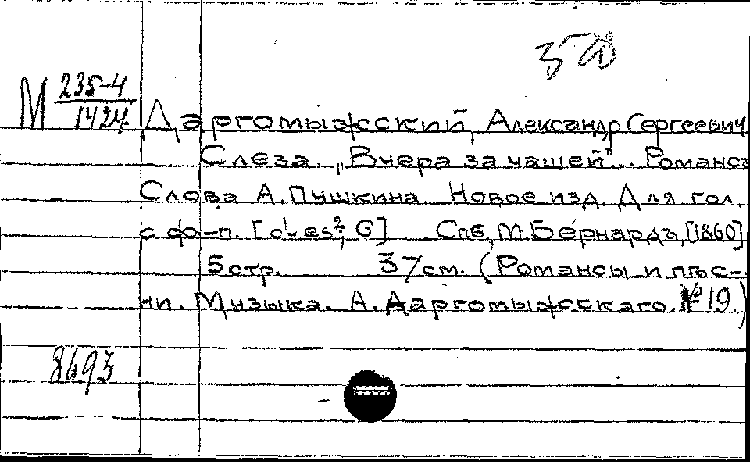 М 235-4/1424
Даргомыжский, Александр Сергеевич
Слеза. „Вчера за чашей". Романс
Слова А. Пушкина. Новое изд. Для гол.
с ф-п. [d-es², G] Спб, М. Бернардъ, [1860]
5 стр. 37 см. (Романсы и пѣс-
ни. Музыка А. Даргомыжскаго. № 19.)
8693